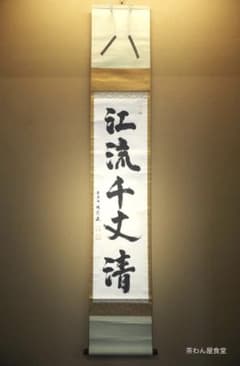 江流千丈清
茶わん屋食堂